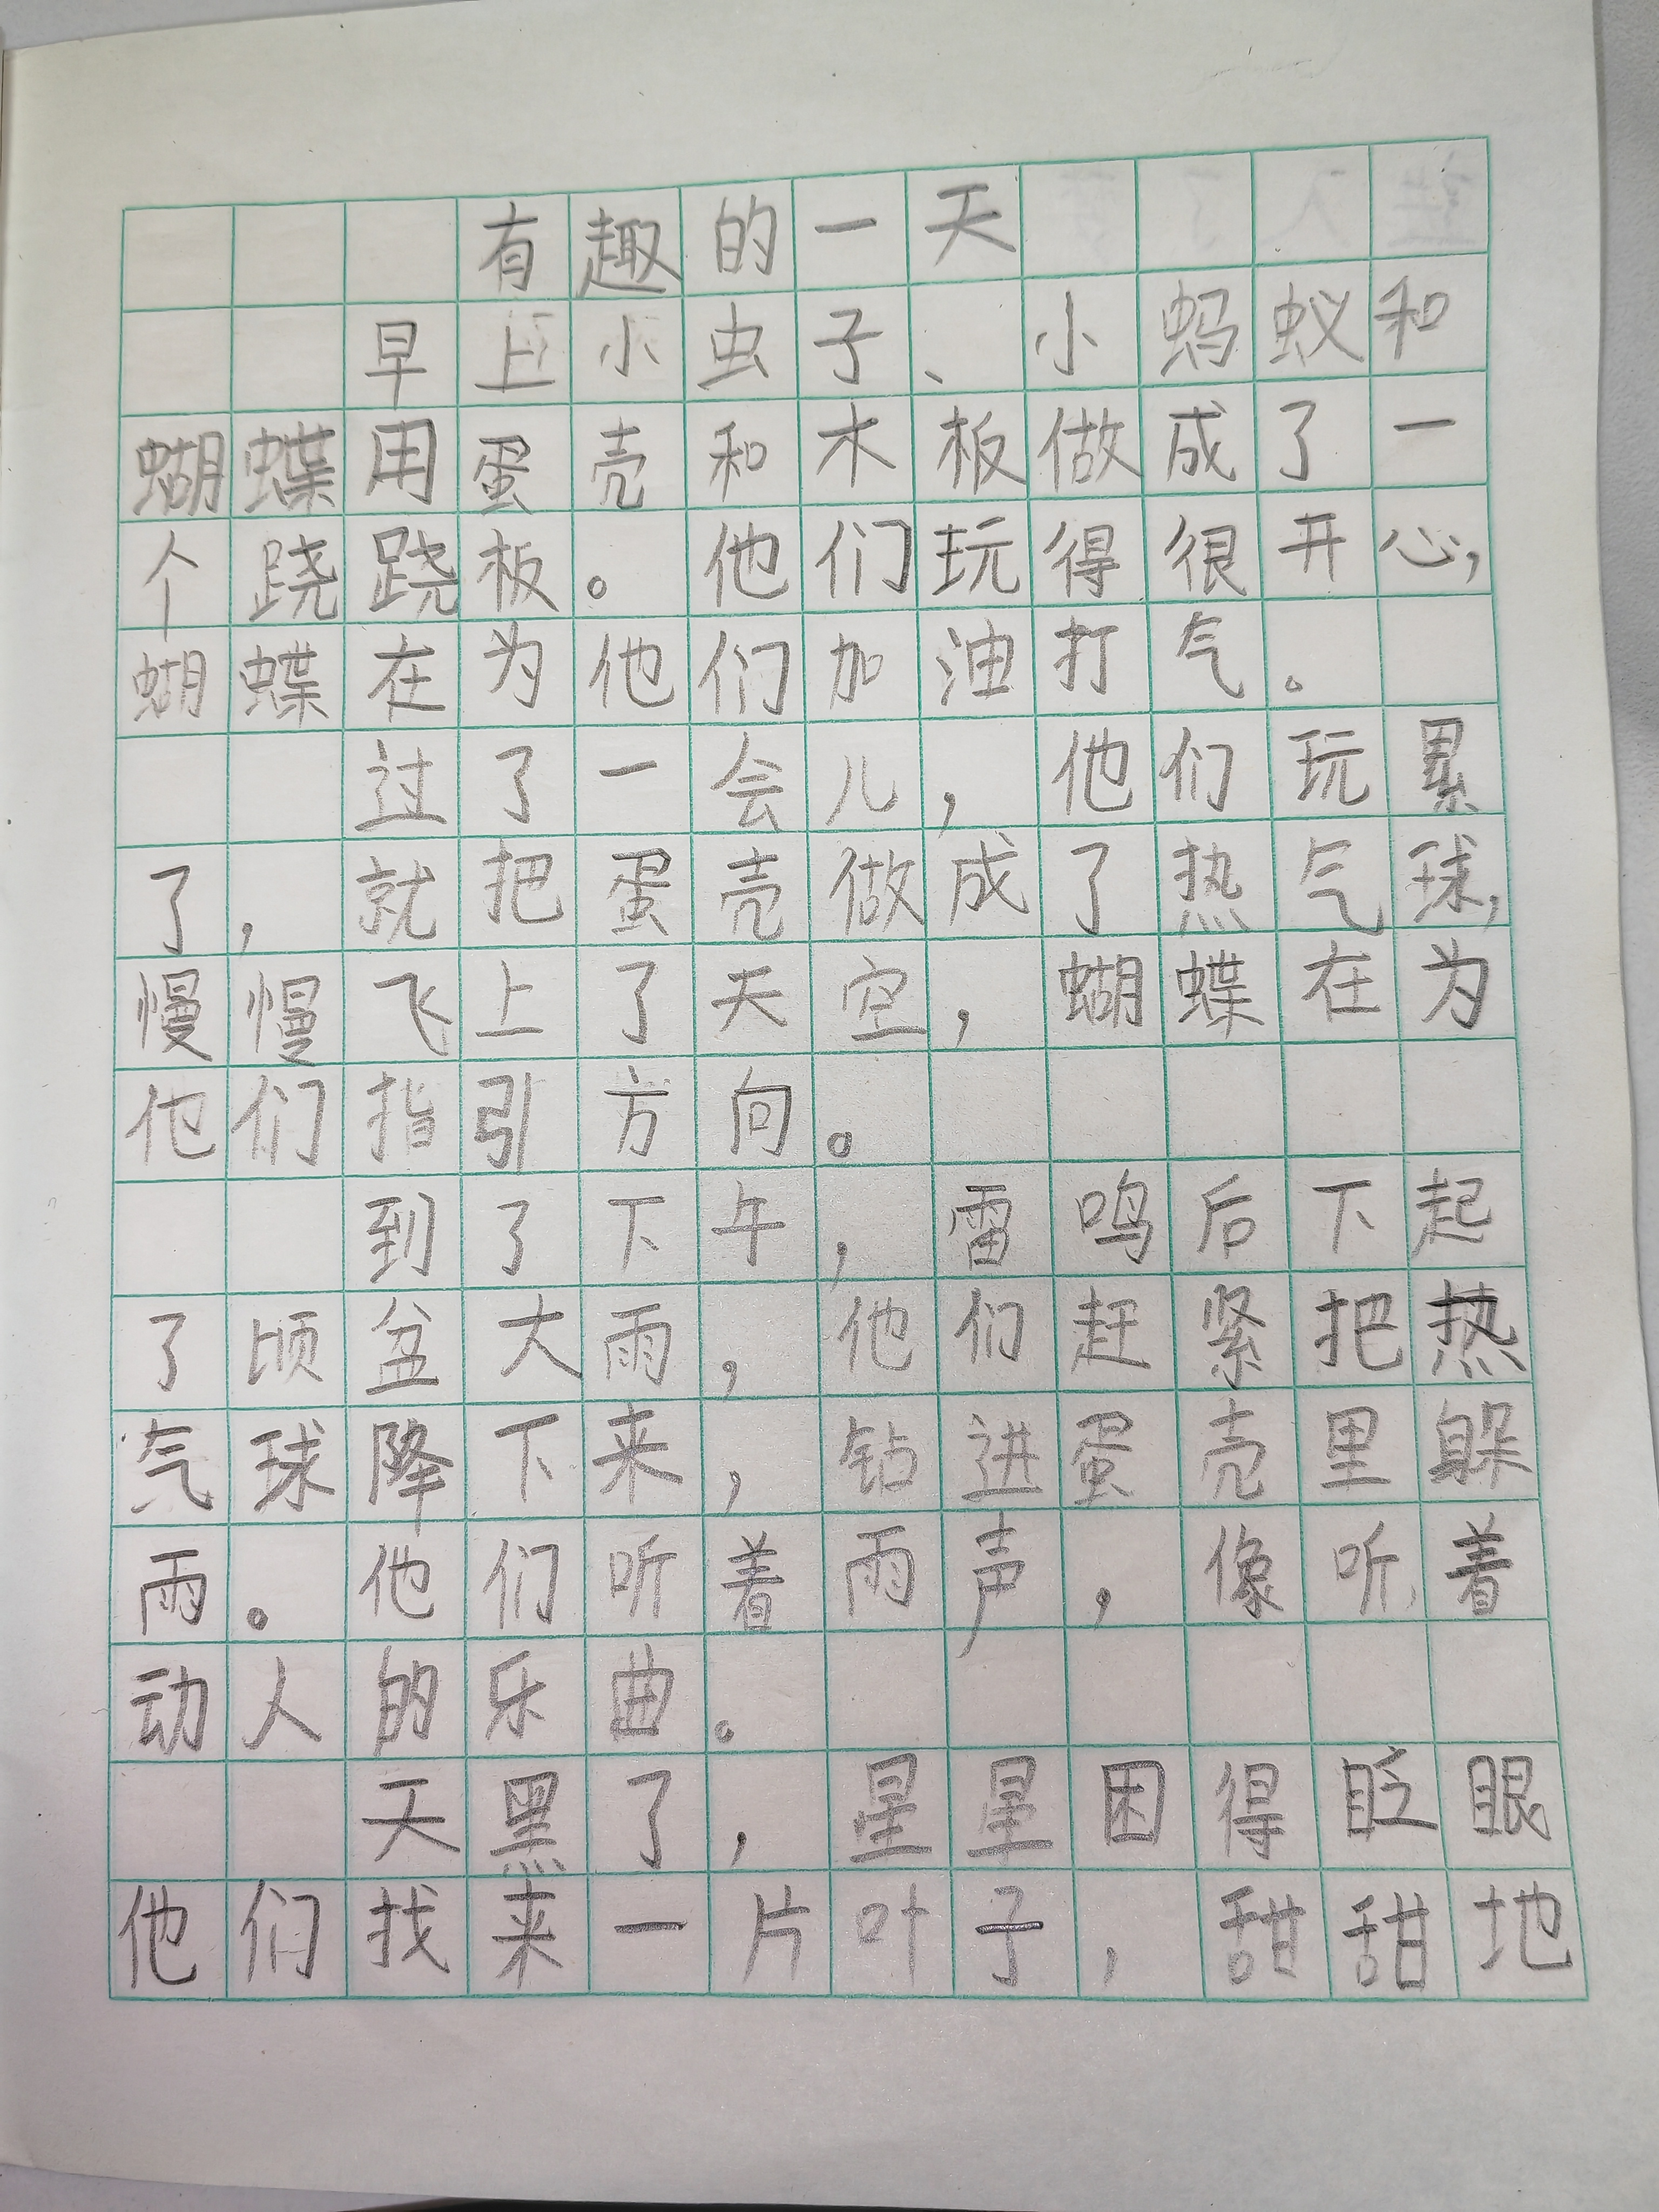 有趣的一天
早上小虫子、小蚂蚁和
蝴蝶用蛋壳和木板做成了一
个跷跷板。他们玩得很开心,
蝴蝶在为他们加油打气。
过了一会儿,他们玩累
了,就把蛋壳做成了热气球,
慢慢飞上了天空,蝴蝶在为
他们指引方向。
到了下午,雷鸣后下起
了顷盆大雨,他们赶紧把热
气球降下来,钻进蛋壳里躲
雨。他们听着雨声,像听着
动人的乐曲。
天黑了,星星困得眨眼
他们找来一片叶子,甜甜地